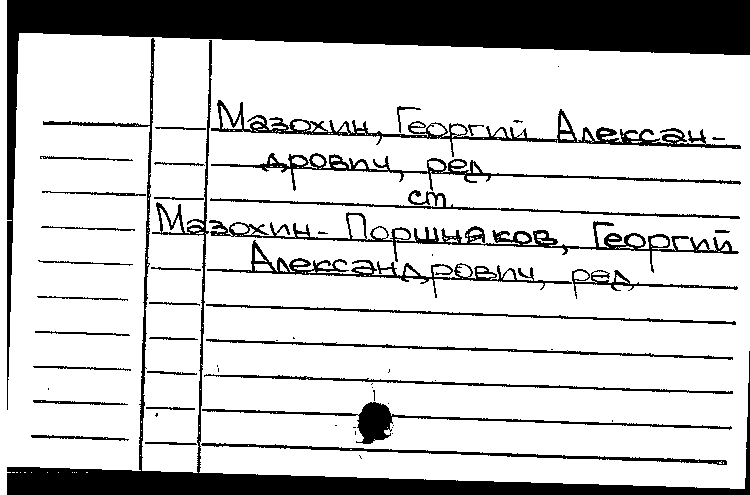 Мазохин, Георгий Алексан-
дрович, ред.
ст.
Мазохин-Поршняков, Георгий
Александрович, ред.